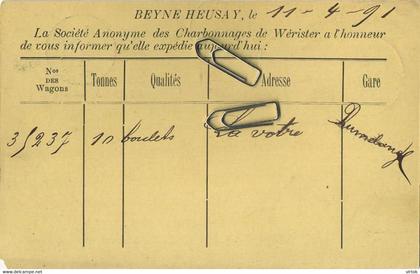 BEYNE HEUSAY, le 11-4-91
La Société Anonyme des Charbonnages de Wérister a l'honneur
de vous informer qu'elle expédie aujourd'hui :
Nos DES Wagons Tonnes Qualités Adresse Gare
35237 10 boulets La votre Rumelange